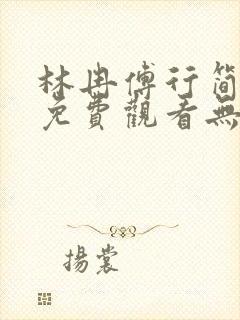 林冉傅行簡
免費觀看無
揚裳